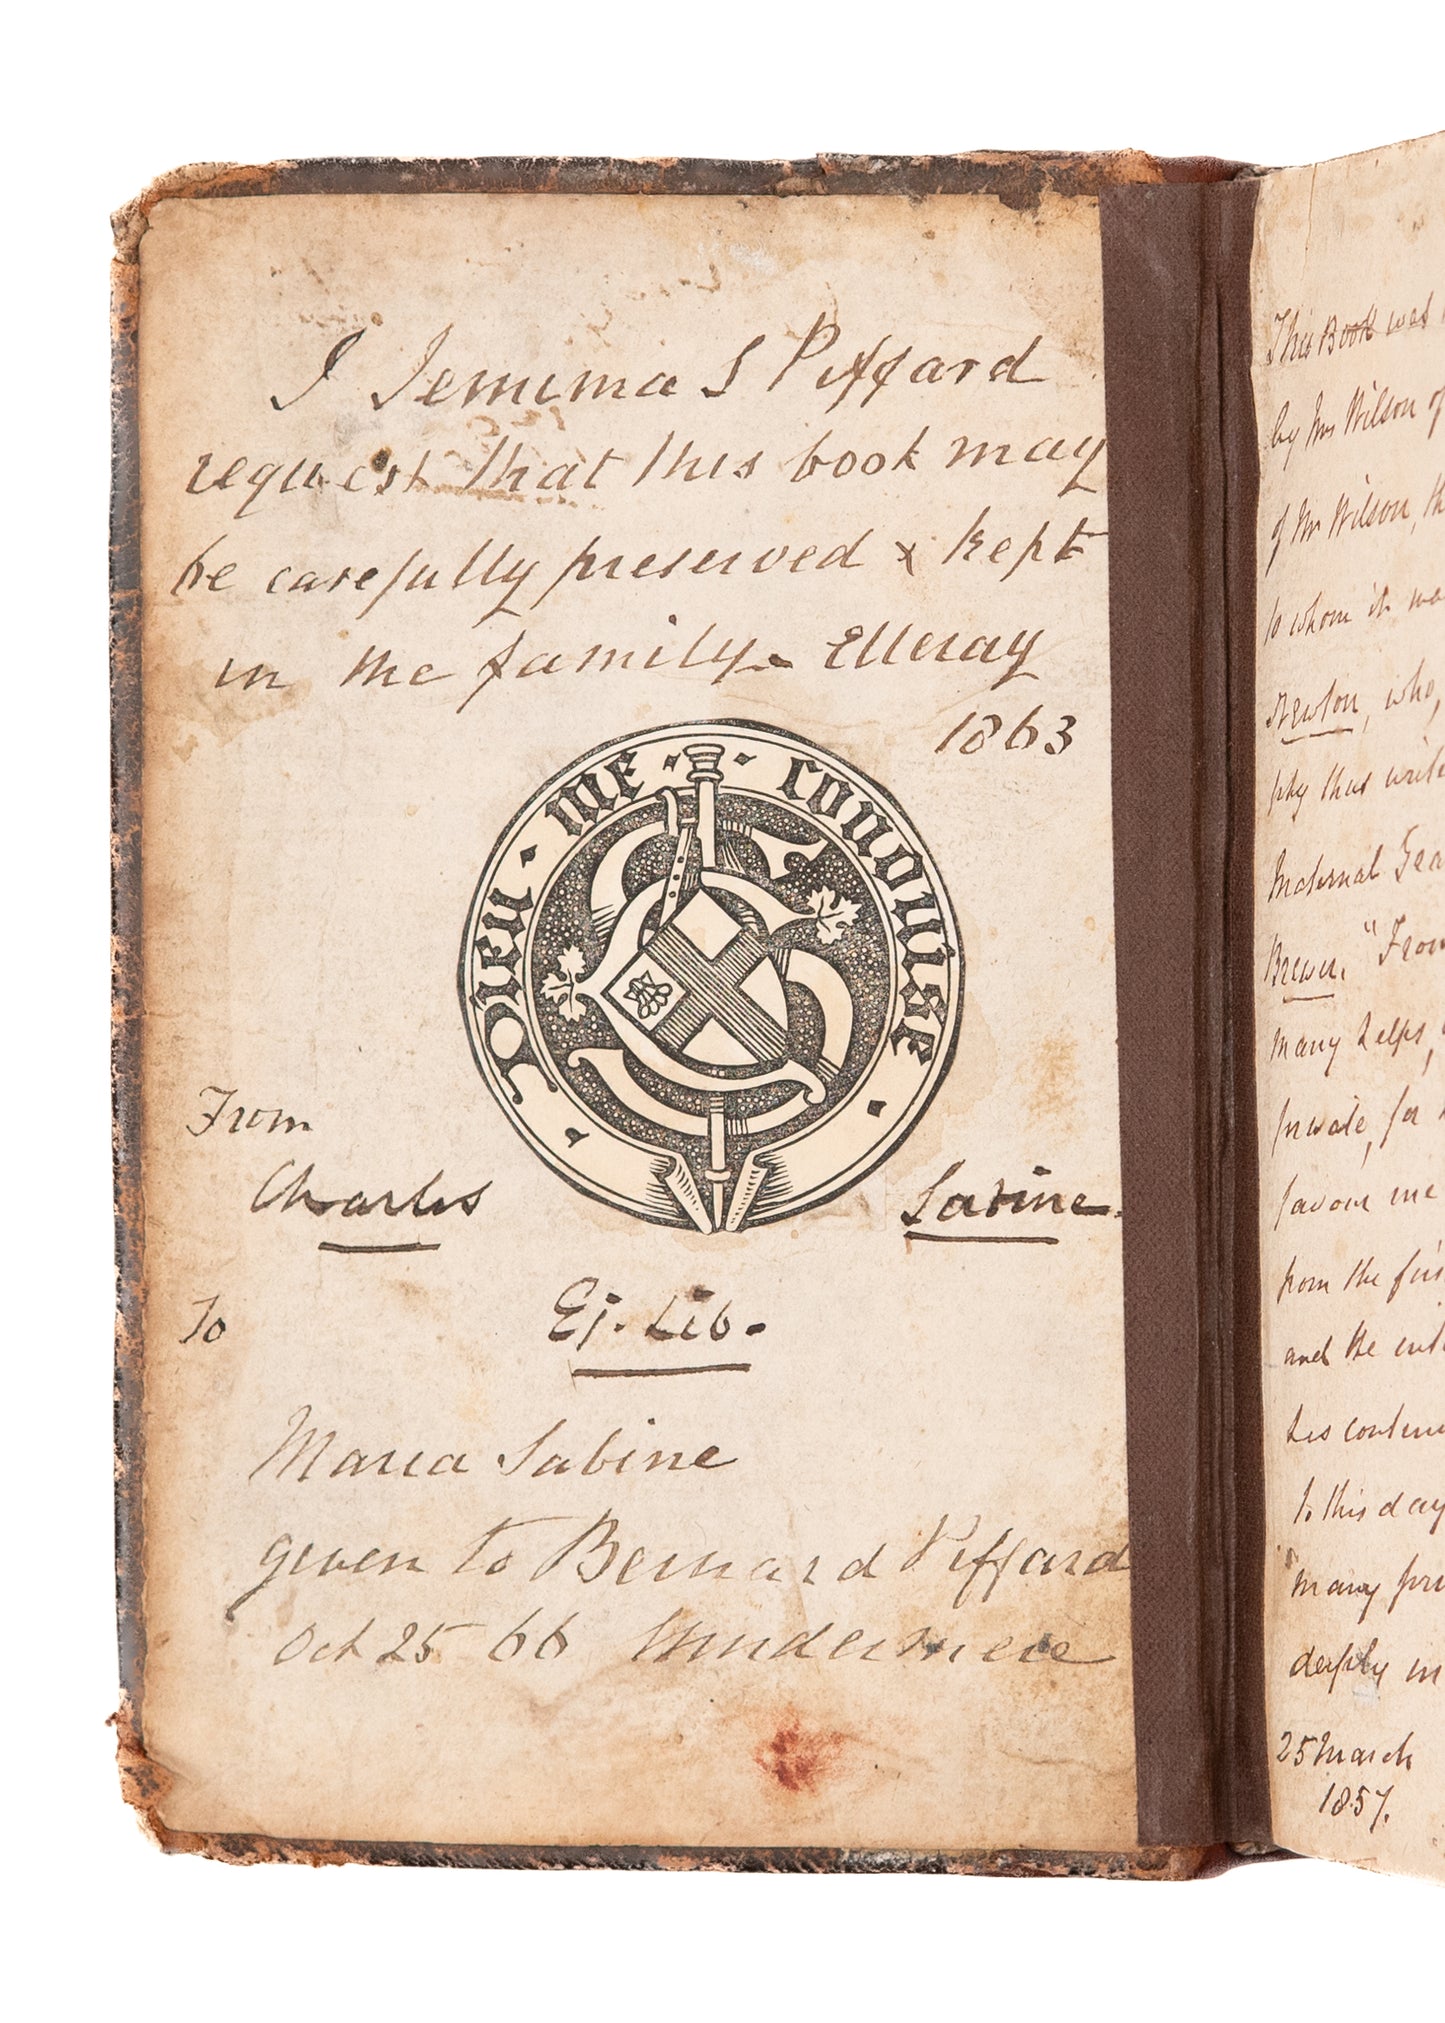 I Jemima S Piffard
request that this book may
be carefully preserved & kept
in the family. Elleray
1863
Dieu · me · conduise
From
Charles Sabine.
To Ej. Lib.
Maria Sabine
given to Bernard Piffard
Oct 25 66 Windermere
This Book was
by Mrs Wilson of
of Mr Wilson, th
to whom it wa
Newton, who,
phy thus write
Maternal Gra
Brewer. "From
many helps,
private, for
favour me
from the firs
and the enti
his continu
to this day
many pri
deeply in
25 March
1857.